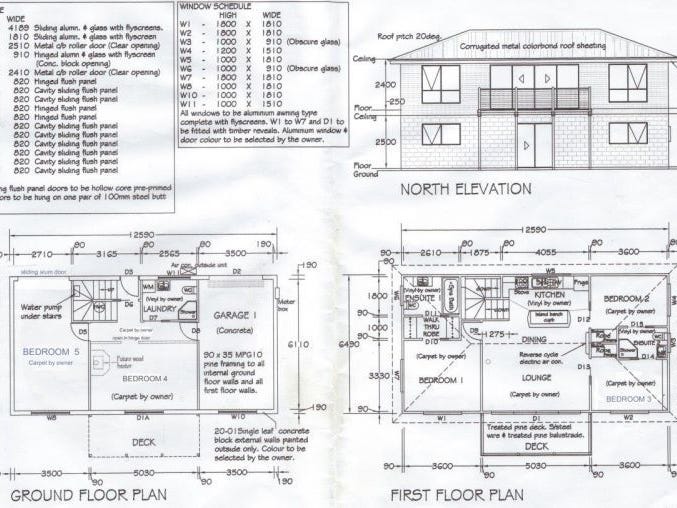 WIDE
4189 Sliding alumn. & glass with flyscreens.
1810 Sliding alumn. & glass with flyscreen
2510 Metal c/b roller door (Clear opening)
910 Sliding alumn. & glass with flyscreen
(Conc. block opening)
2410 Metal c/b roller door (Clear opening)
820 Hinged flush panel
820 Cavity sliding flush panel
820 Cavity sliding flush panel
820 Hinged flush panel
820 Hinged flush panel
820 Cavity sliding flush panel
820 Cavity sliding flush panel
820 Cavity sliding flush panel
820 Cavity sliding flush panel
flush panel doors to be hollow core pre-primed
to be hung on one pair of 100mm steel butt
WINDOW SCHEDULE
HIGH WIDE
W1 - 1800 X 1810
W2 - 1800 X 1810
W3 - 1000 X 910 (Obscure glass)
W4 - 1200 X 1510
W5 - 1000 X 1810
W6 - 1000 X 910 (Obscure glass)
W7 - 1800 X 1810
W8 - 1000 X 1810
W10 - 1000 X 1810
W11 - 1000 X 1510
All windows to be aluminum awning type
complete with flyscreens. W1 to W7 and D1 to
be fitted with timber reveals. Aluminum window &
door colour to be selected by the owner.
Roof pitch 20deg.
Corrugated metal colorbond roof sheeting
Ceiling
2400
250
Floor
Ceiling
2500
Floor
Ground
NORTH ELEVATION
12590
90 90 90 190
2710 3165 2565 3500
Air con. outside unit
sliding alum door
D3 W11 D2
190
Water pump
under stairs
D6
WM
(Vinyl by owner)
LAUNDRY
D7
WC
Shower
GARAGE 1
(Concrete)
Meter
box
D5
Carpet by owner
D8
BEDROOM 5
Carpet by owner
BEDROOM 4
(Carpet by owner)
90 x 35 MPG10
pine framing to all
internal ground
floor walls and all
first floor walls.
6110
190
W8 D1A W10
DECK
20-01Single leaf concrete
block external walls painted
outside only. Colour to be
selected by the owner.
90 90
3500 5030 3500
12590
GROUND FLOOR PLAN
12590
90 90 90 90 90
2610 1875 4055 3600
W5
90
1800
90
1000
90
3330
90
6490
W6
WC
(Vinyl by owner)
ENSUITE
D11
WALK
THRU
ROBE
D10
Stove
KITCHEN
(Vinyl by owner)
Island bench
D12
BEDROOM 2
(Carpet by owner)
D15
D9
1275
DINING
(Carpet by owner)
Reverse cycle
electric air con.
Robe
ENSUITE
D14
D13
W7
BEDROOM 1
(Carpet by owner)
LOUNGE
(Carpet by owner)
(Carpet by owner)
BEDROOM 3
W1 D1 W2
Treated pine deck. S/steel
wire & treated pine balustrade.
DECK
90 90 90 90
3600 5030 3600
12590
FIRST FLOOR PLAN